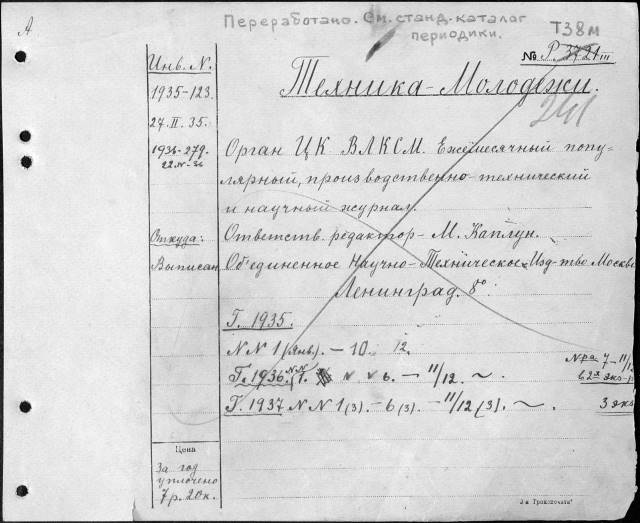 А
Переработано. См. станд. каталог
периодики.
Т38м
№ Р 3721 III
Инв. N.
Техника-Молодежи.
241
1935-123.
27.II.35.
1936-279.
22.IV-36
Орган ЦК ВЛКСМ. Ежемесячный попу-
лярный, производственно-технический
и научный журнал.
Откуда:
Ответств. редактор - М. Каплун.
Выписан
Объединенное Научно-Техническое Изд-тво Москва
Ленинград. 8°.
Г. 1935.
N N 1 (янв). - 10. 12.
Г. 1936. N N 1. 6. - 11/12.
Nра 7-11/12
в 2х экз-
Г. 1937 N N 1 (3). - 6 (3). - 11/12 (3).
3 экз
Цена
За год
уплочено
7 р. 20 к.